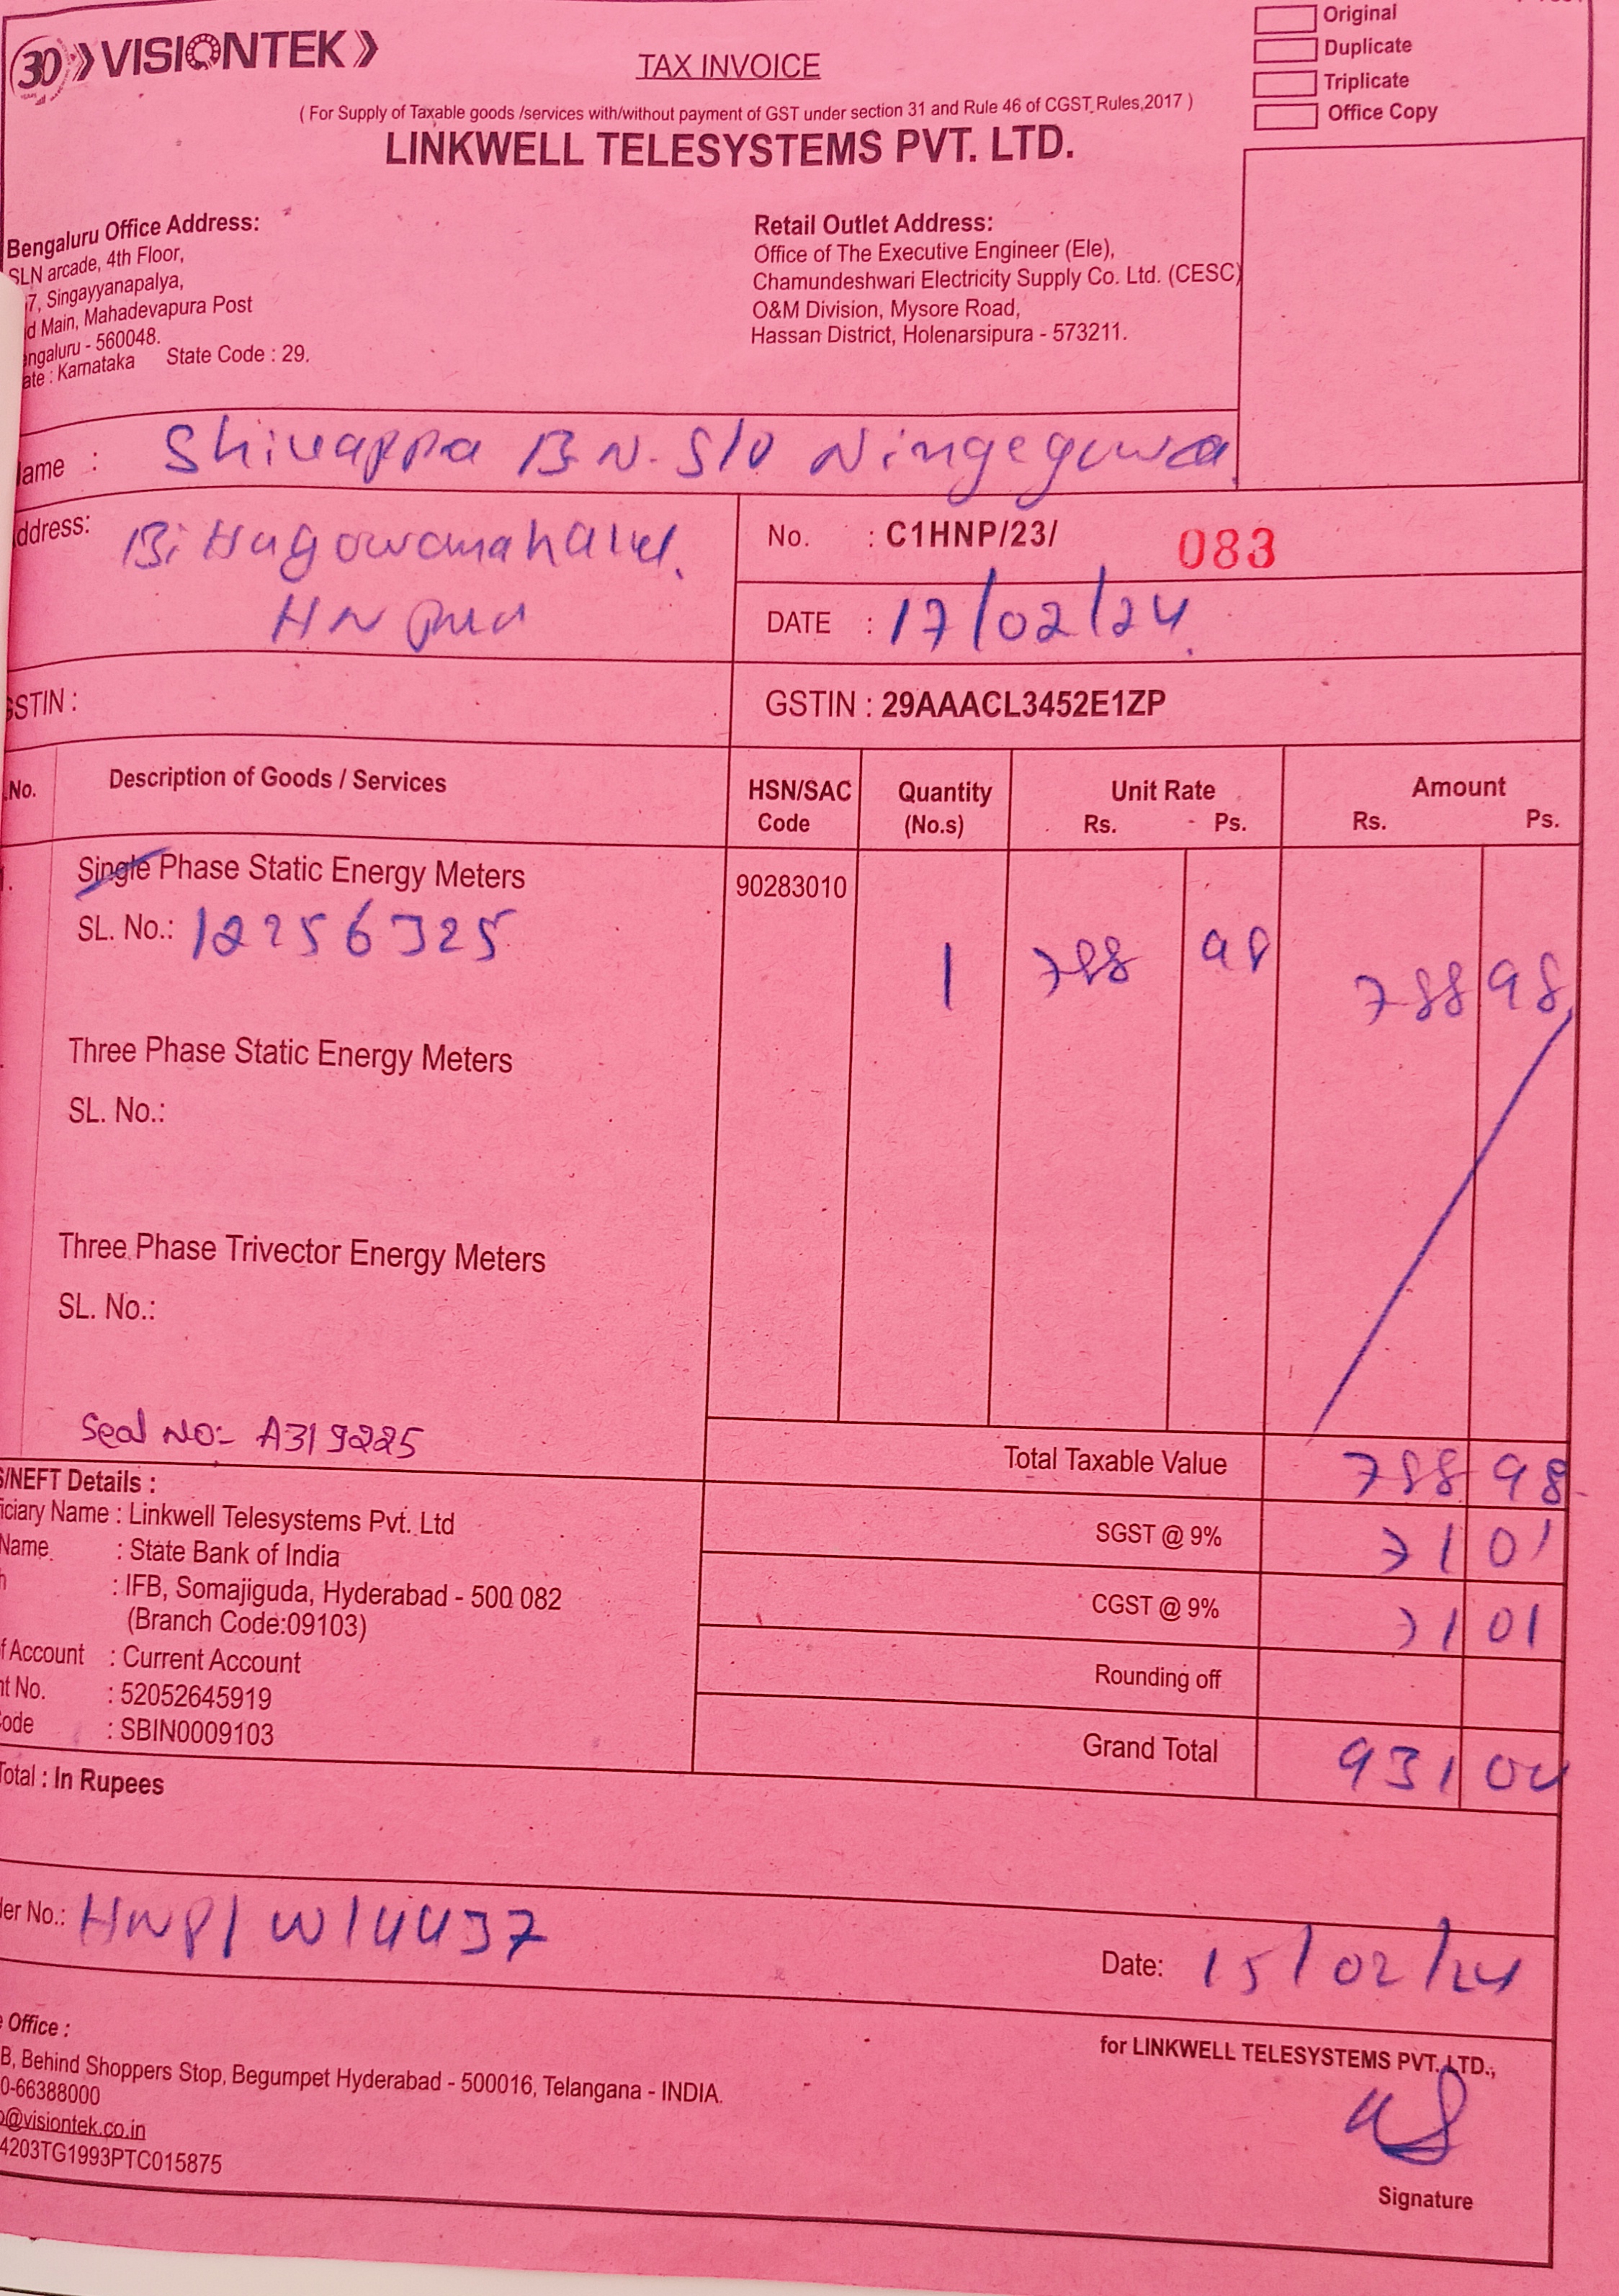 30 VISIONTEK
TAX INVOICE
Original
Duplicate
Triplicate
Office Copy
( For Supply of Taxable goods /services with/without payment of GST under section 31 and Rule 46 of CGST Rules,2017 )
LINKWELL TELESYSTEMS PVT. LTD.
Bengaluru Office Address:
SLN arcade, 4th Floor,
7, Singayyanapalya,
d Main, Mahadevapura Post
ngaluru - 560048.
ate : Karnataka State Code : 29.
Retail Outlet Address:
Office of The Executive Engineer (Ele),
Chamundeshwari Electricity Supply Co. Ltd. (CESC)
O&M Division, Mysore Road,
Hassan District, Holenarsipura - 573211.
ame : Shivappa B.N. S/O Ningegowda
ddress:
HN pura
No. : C1HNP/23/ 083
DATE : 17/02/24
GSTIN :
GSTIN : 29AAACL3452E1ZP
.No. Description of Goods / Services HSN/SAC Code Quantity (No.s) Unit Rate Rs. Ps. Amount Rs. Ps.
Single Phase Static Energy Meters 90283010
SL. No.: 12256325 1 788 98 788 98
Three Phase Static Energy Meters
SL. No.:
Three Phase Trivector Energy Meters
SL. No.:
Seal NO:- A319225
Total Taxable Value 788 98
SGST @ 9% 71 01
CGST @ 9% 71 01
Rounding off
Grand Total 931 00
S/NEFT Details :
iciary Name : Linkwell Telesystems Pvt. Ltd
Name : State Bank of India
h : IFB, Somajiguda, Hyderabad - 500 082
(Branch Code:09103)
f Account : Current Account
nt No. : 52052645919
ode : SBIN0009103
Total : In Rupees
er No.: HNP/W14437
Date: 15/02/24
e Office :
B, Behind Shoppers Stop, Begumpet Hyderabad - 500016, Telangana - INDIA.
0-66388000
o@visiontek.co.in
4203TG1993PTC015875
for LINKWELL TELESYSTEMS PVT. LTD.,
Signature